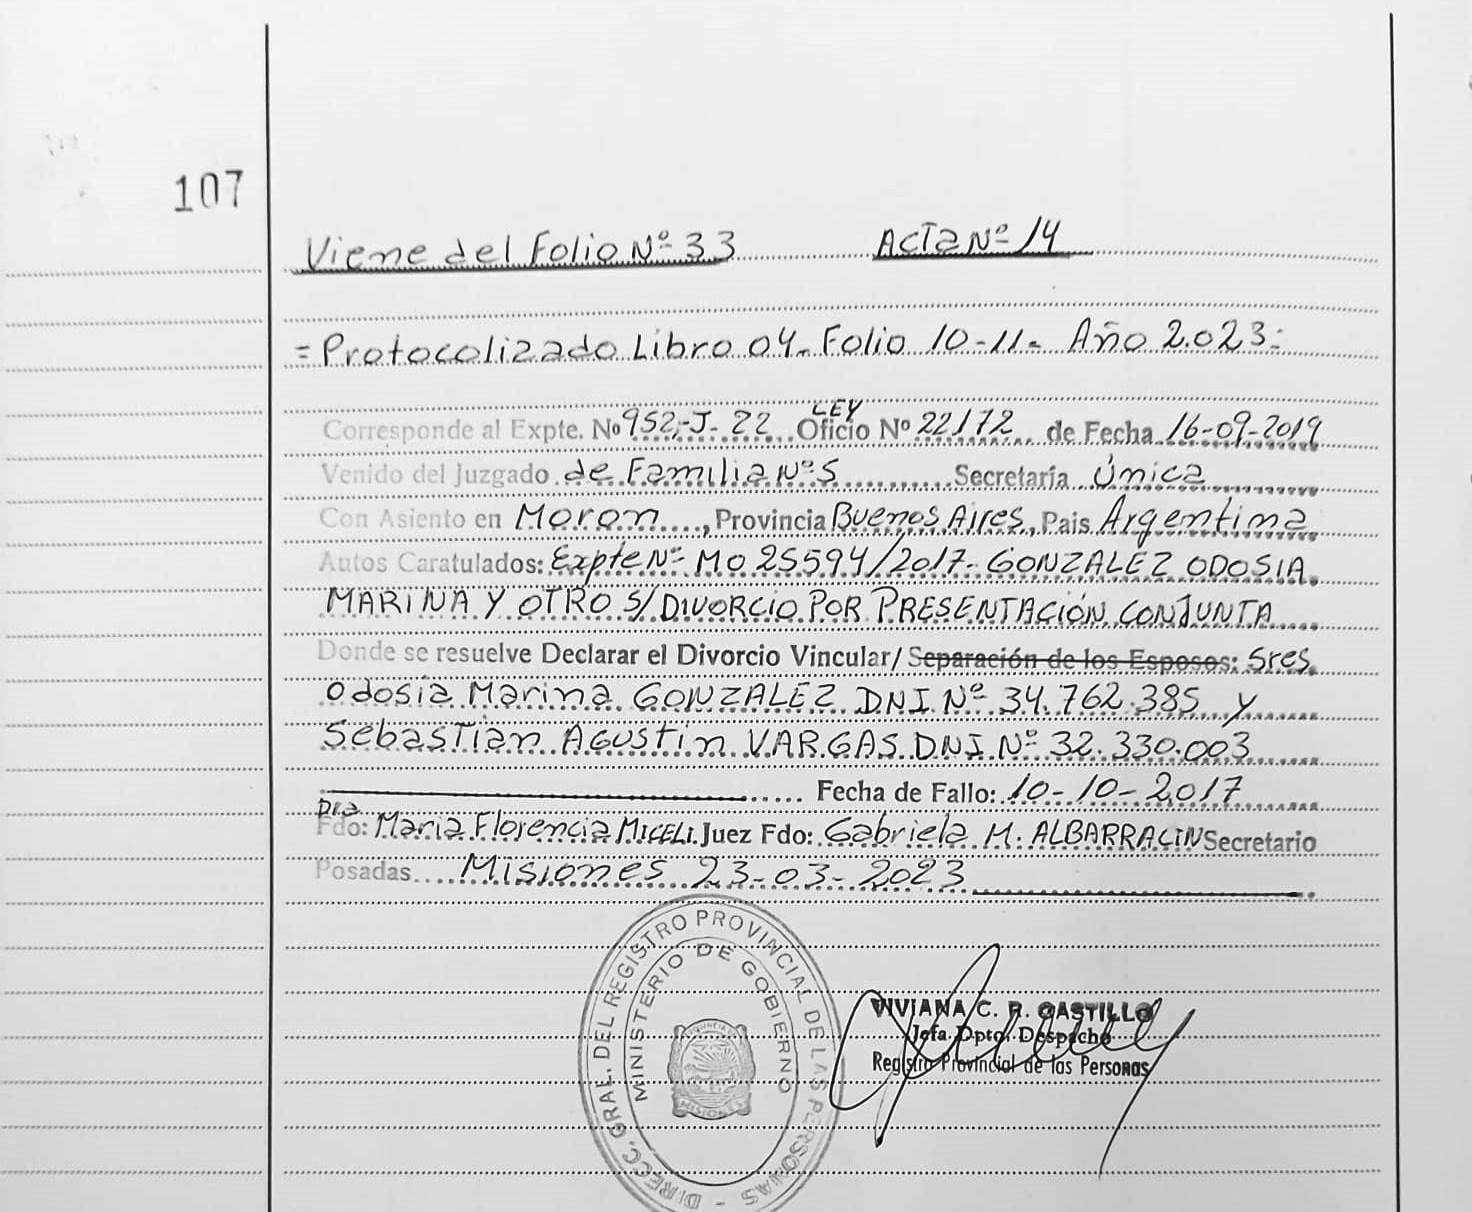 107
Viene del Folio Nº 33 Acta Nº 14
= Protocolizado Libro 04. Folio 10-11- Año 2.023:
LEY
Corresponde al Expte. Nº 952-J-22 Oficio Nº 22172 de Fecha 16-09-2019
Venido del Juzgado de Familia Nº 5 Secretaría Única
Con Asiento en Moron, Provincia Buenos Aires, Pais Argentina
Autos Caratulados: Expte Nº MO 25594/2017- GONZALEZ ODOSIA
MARINA Y OTRO S/ DIVORCIO POR PRESENTACIÓN CONJUNTA
Donde se resuelve Declarar el Divorcio Vincular/ Separación de los Esposos: Sres.
Odosia Marina GONZALEZ DNI Nº 34.762.385 y
Sebastian Agustin VARGAS DNI Nº 32.330.003
Fecha de Fallo: 10-10-2017
Dra
Fdo: Maria Florencia MICELI Juez Fdo: Gabriela M. ALBARRACIN Secretario
Posadas Misiones 23-03-2023
DIRECC. GRAL. DEL REGISTRO PROVINCIAL DE LAS PERSONAS -
MINISTERIO DE GOBIERNO
MISIONES
VIVIANA C. R. CASTILLO
Jefa Dpto. Despacho
Registro Provincial de las Personas